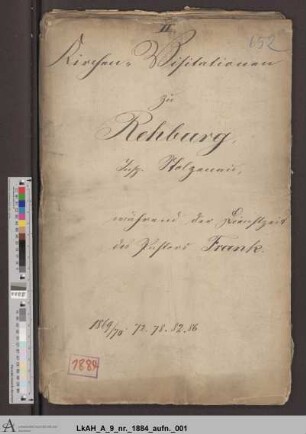 II.
152
Kirchen-Visitationen
zu
Rehburg,
Insp. Stolzenau,
während der Dienstzeit
des Pastors Frank.
1869/70. 72. 78. 82. 86
1884
LkAH_A_9_nr._1884_aufn._001